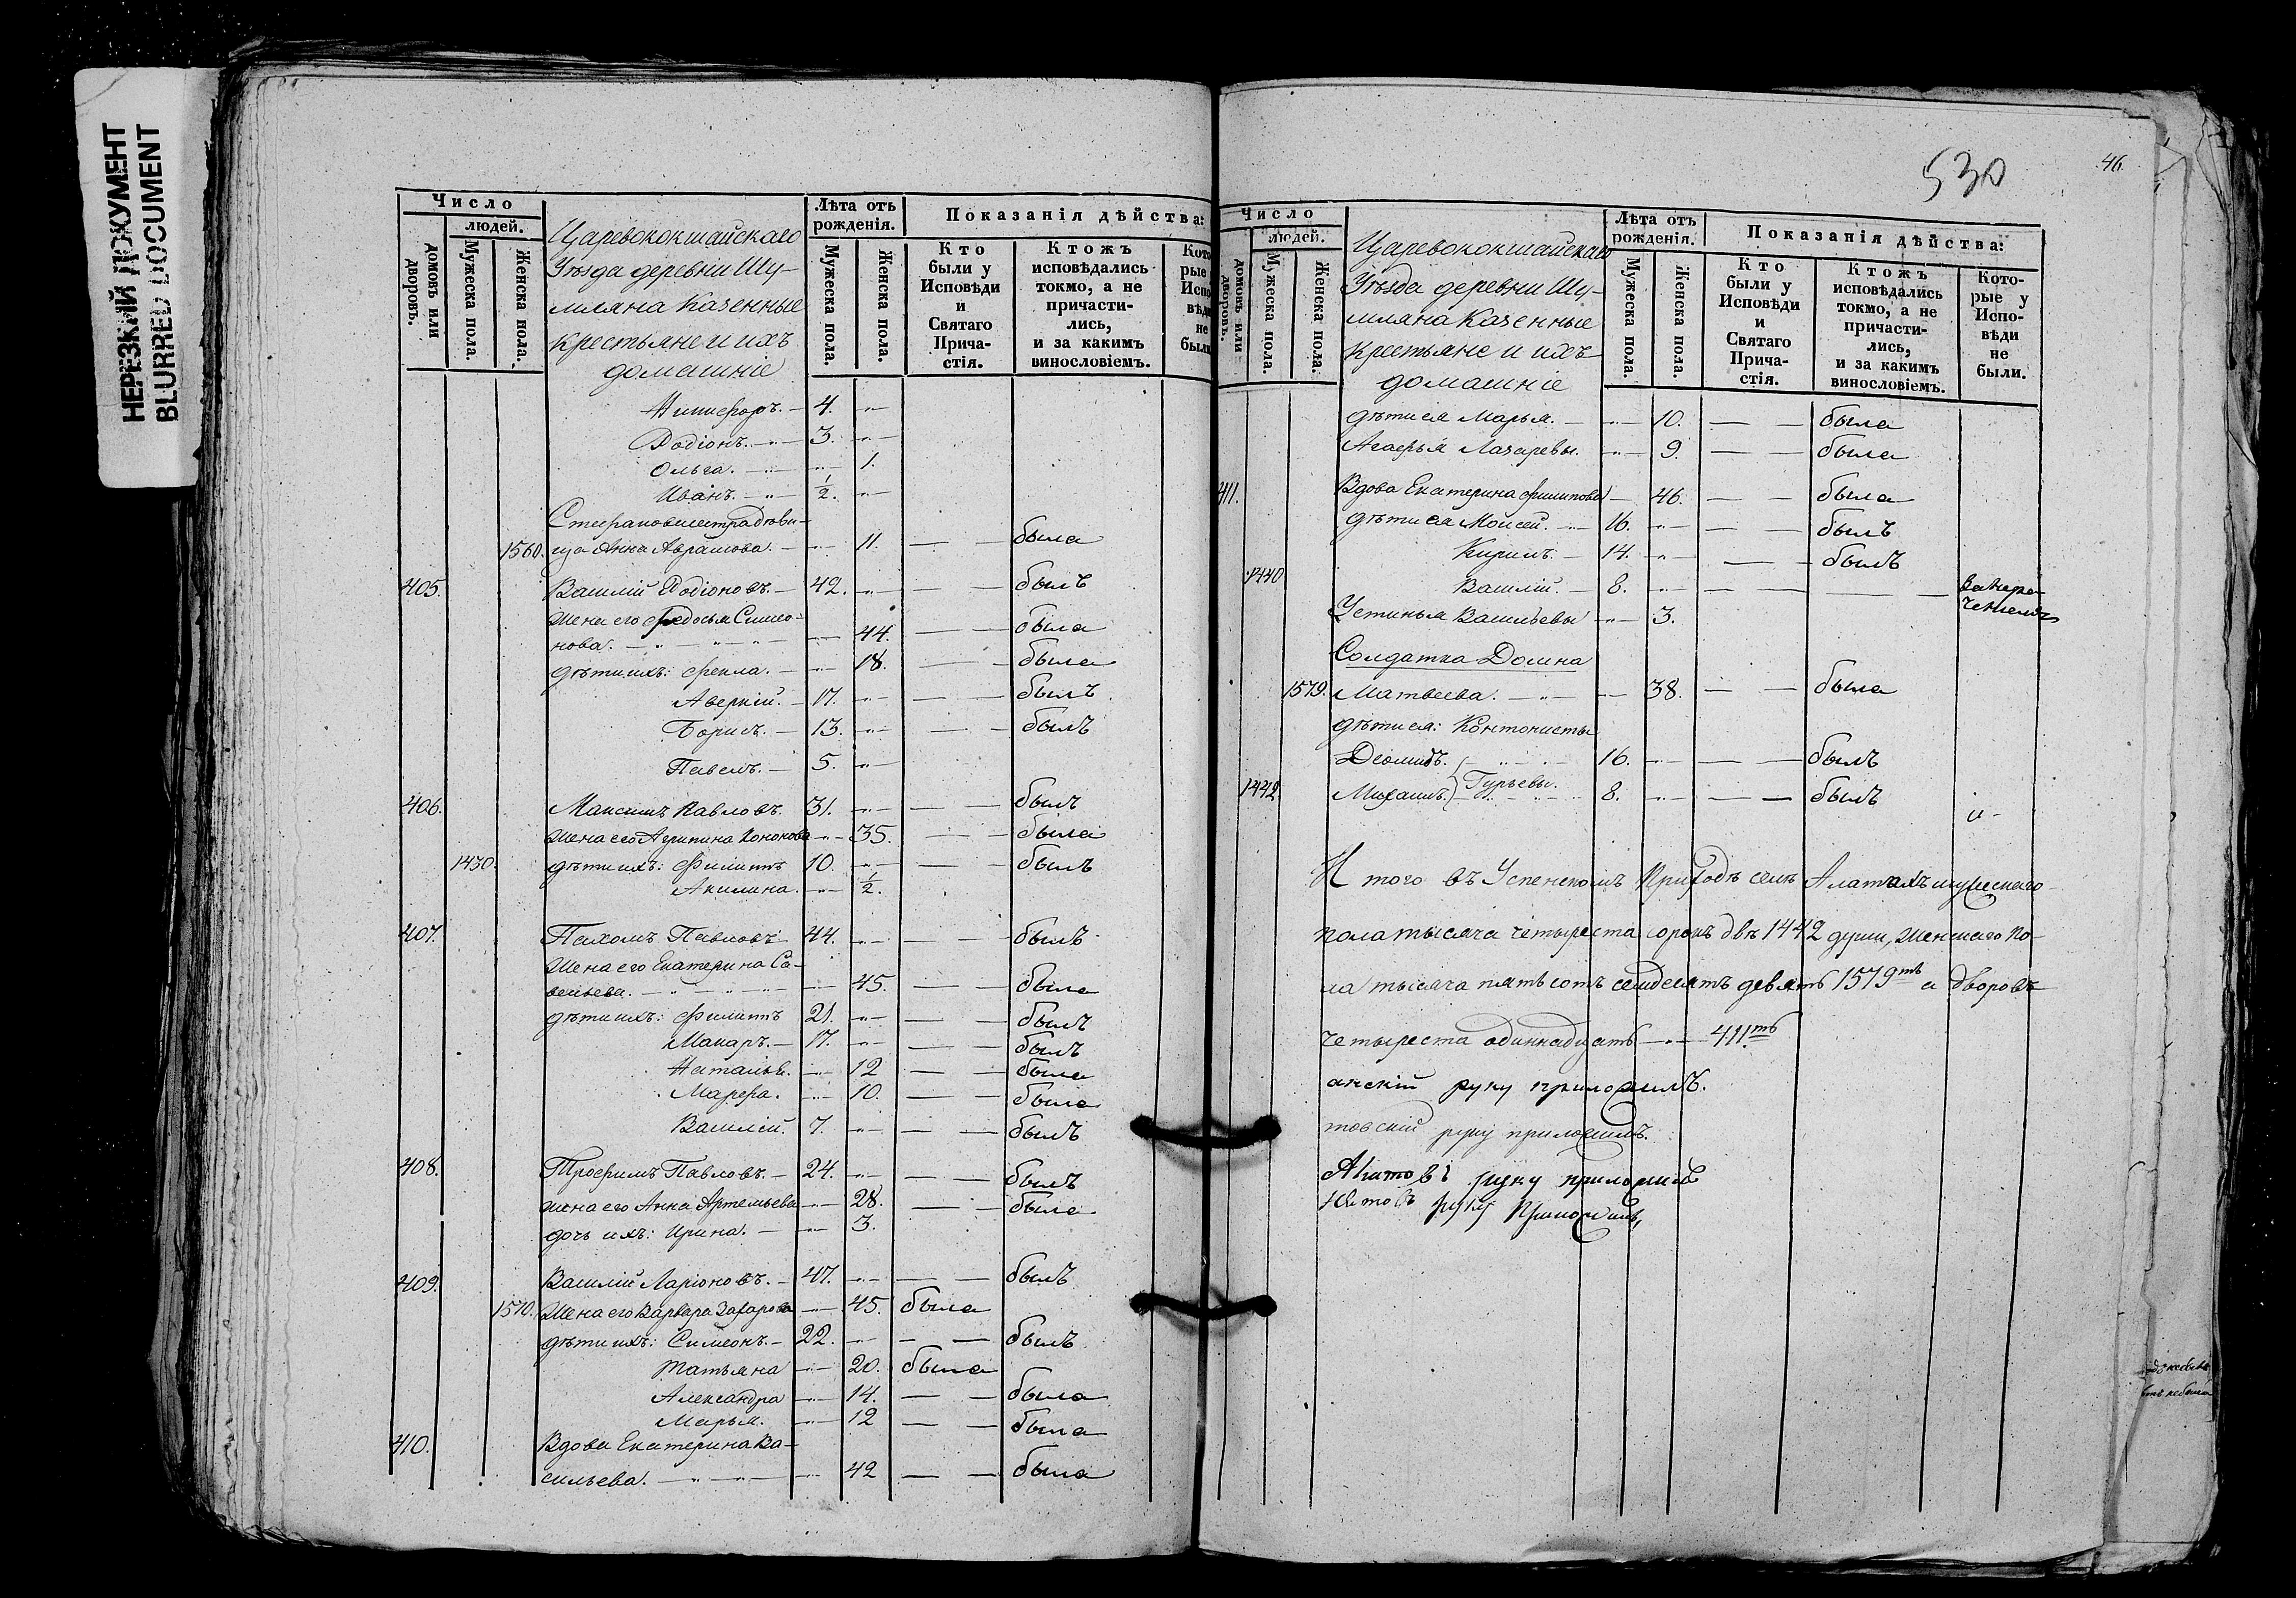 НЕРЕЗКИЙ ДОКУМЕНТ
BLURRED DOCUMENT
Число
людей.
домовъ или дворовъ.
Мужеска пола.
Женска пола.
Царевококшайскаго
Уѣзда деревни Шу-
мляна Казенные
крестьяне и ихъ
домашніе
Лѣта отъ рожденія.
Мужеска пола.
Женска пола.
Показанія дѣйства:
Кто были у Исповѣди и Святаго Прича-стія.
Ктожъ исповѣдались токмо, а не причасти-лись, и за какимъ винословіемъ.
Кото рые Испо вѣди не были
Никифоръ. 4.
Родіонъ. 3.
Ольга. 1.
Иванъ. 1/2.
1560. ца Анна Аврамова. 11. была
405. Василій Родіоновъ. 42. былъ
Жена его Ѳедосья Симео-
нова. 44. была
дѣти ихъ: Ѳекла. 18. была
Аверкій. 17. былъ
Борисъ. 13. былъ
Павелъ. 5.
406. Максимъ Павловъ. 31. былъ
Жена его Агрипина Кононова 35. была
1430. дѣти ихъ: Филиппъ 10. былъ
Акилина. 1/2.
407. Пахомъ Павловъ 44. былъ
Жена его Екатерина Са-
вельева. 45. была
дѣти ихъ: Филиппъ 21. былъ
Макаръ. 17. былъ
Наталья. 12 была
Марѳа. 10. была
Василій. 7. былъ
408. Трофимъ Павловъ. 24. былъ
жена его Анна Артемьева 28. была
дочь ихъ: Ирина. 3.
409. Василій Ларіоновъ. 47. былъ
1570. Жена его Варвара Захарова 45. была
дѣти ихъ: Симеонъ. 22. былъ
Татьяна 20. была
Александра 14. была
Марья. 12 была
410. Вдова Екатерина Ва-
сильева. 42 была
530
46.
Число
людей.
домовъ или дворовъ.
Мужеска пола.
Женска пола.
Царевококшайскаго
Уѣзда деревни Шу-
мляна Казенные
крестьяне и ихъ
домашніе
Лѣта отъ рожденія.
Мужеска пола.
Женска пола.
Показанія дѣйства:
Кто были у Исповѣди и Святаго Прича-стія.
Ктожъ исповѣдались токмо, а не причасти-лись, и за какимъ винословіемъ.
Кото-рые у Испо-вѣди не были.
дѣти ея Марья. 10. была
Агафья Лазаревы. 9. была
411. Вдова Екатерина Филипова 46. была
дѣти ея Моисей. 16. былъ
Кирилъ. 14. былъ
1440 Василій. 8.
Устинья Васильевы 3.
Солдатка Домна
1579. Матвеева. 38. была
дѣти ея: Контонисты
Діомидъ. 16. былъ
1442. Михаилъ. Гурьевы. 8. былъ
и
Итого въ Успенскомъ Приходѣ села Алатахъ мужескаго
пола тысяча четыреста сорокъ двѣ 1442 души, Женскаго По-
ла тысяча пятьсотъ семдесятъ девять 1579ть а дворовъ
четыреста одиннадцать 411ть
анскій руку приложилъ.
товскій руку приложилъ.
руку приложилъ
руку Приложилъ,